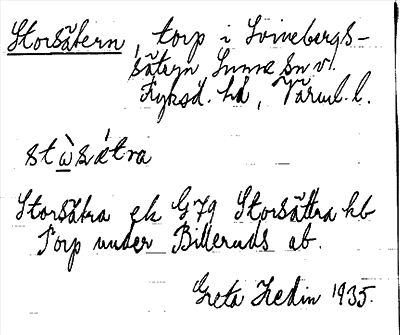 Storsätern, torp i Svinebergs-
sätern Sunne sn v.
Fryksd. hd, Värml. l.
stẁsátra
Storsätra ek G79 Storsättra hb
Torp under Billeruds ab.
Greta Hedin 1935.